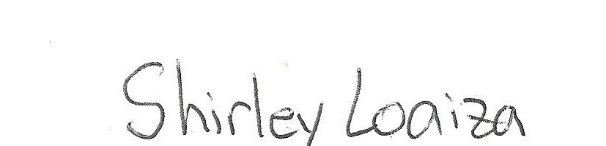 Shirley Loaiza